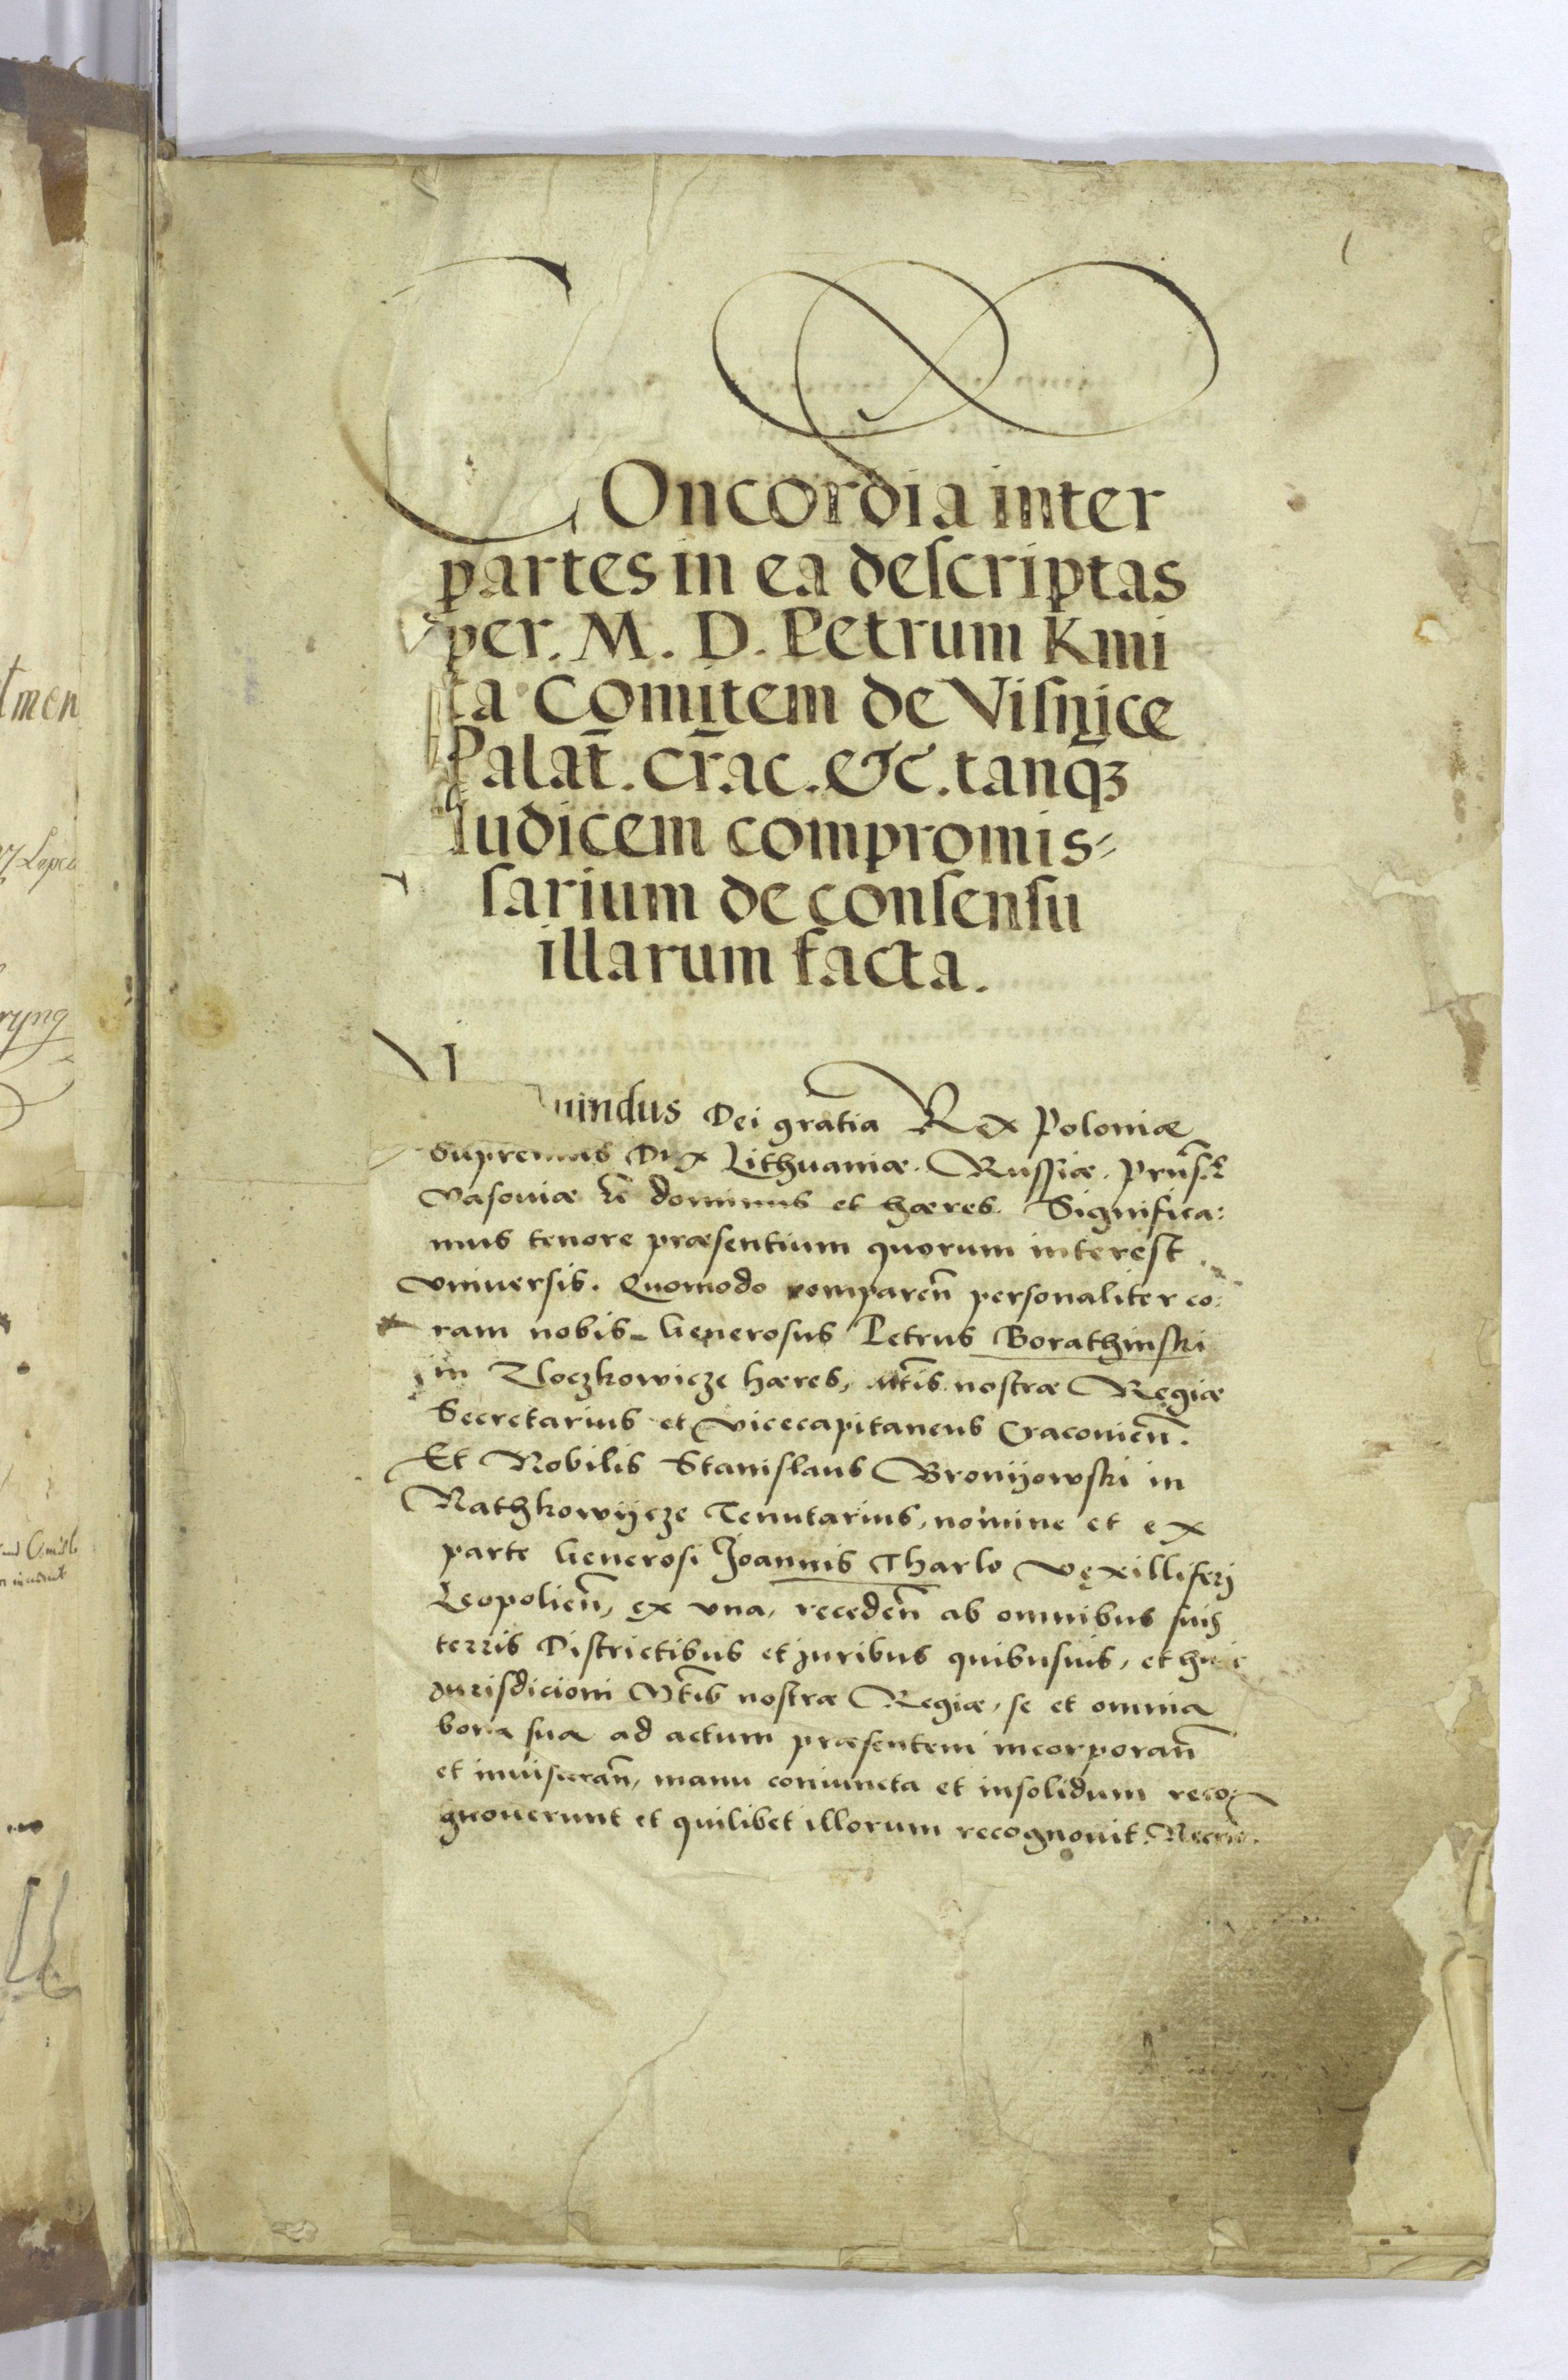 COncordia inter
partes in ea descriptas
per. M. D. Petrum Kmi
ta Comitem de Visnice
Palat̄. cr̄ac. &c. tanqȝ
Iudicem compromis⸗
sarium de consensu
illarum facta.
mundus Dei gratia Rex Poloniæ
Supremus Dux Lithuaniæ. Russiæ.
dominus et hæres. Significa:
mus tenore præsentium quorum interest
Vniuersis. Quomodo comparen̄ personaliter co:
ram nobis Generosus Petrus Borathinski
in Zloczkowicze hæres, Mt̄is nostræ Regiæ
Secretarius et Vicecapitaneus Cracovien̄.
Et Nobilis Stanislaus Bronijowski in
Rathkowijcze Tenutarius, nomine et ex
parte Generosi Joannis Tharlo Vexilliferj
Leopolien̄, ex vna, receden̄ ab omnibus suis
terris Districtibus et juribus quibusuis, et huic
jurisdicioni Mt̄is nostræ Regiæ, se et omnia
bona sua ad actum præsentem incorporan̄
et inuisceran̄, manu coniuncta et insolidum reco:
gnouerunt et quilibet illorum recognouit.
tmen
ryng